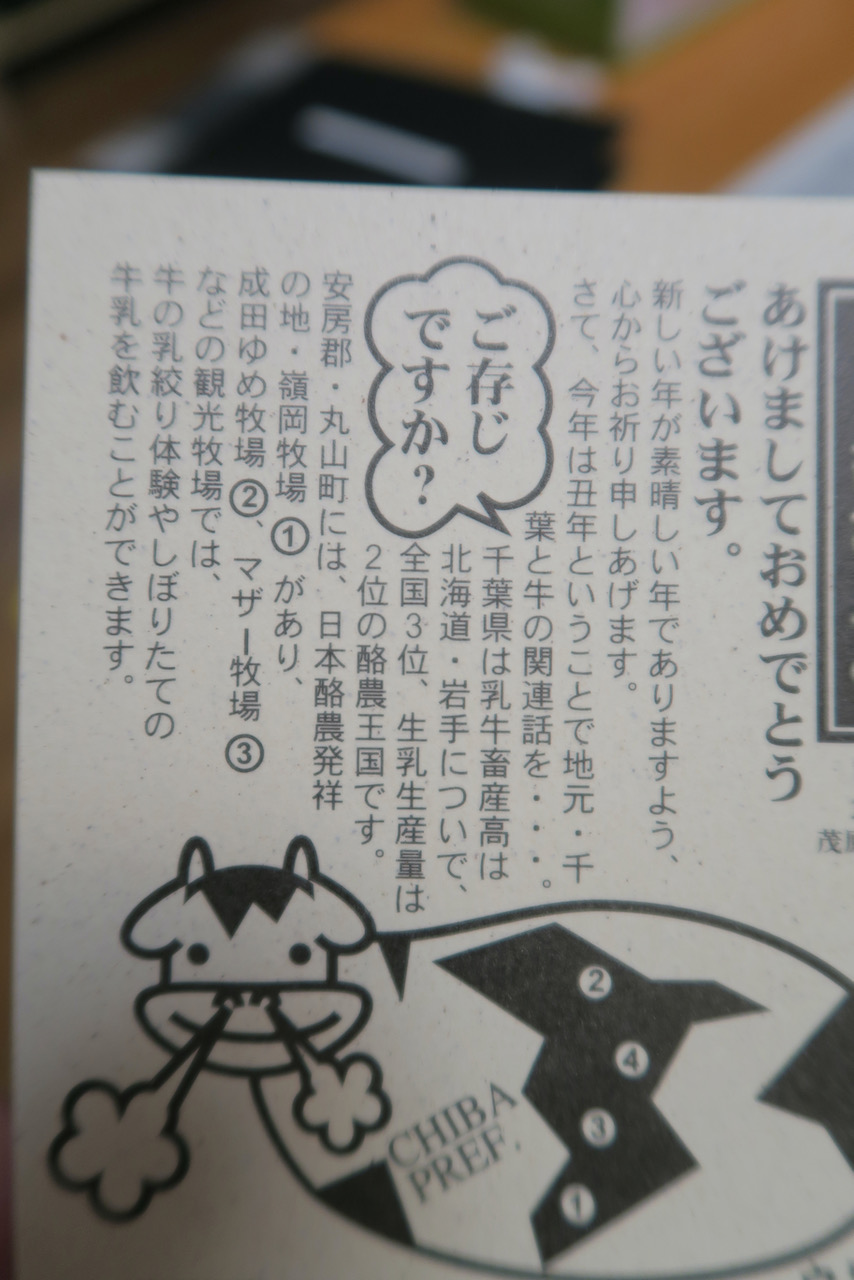 あけましておめでとう
ございます。
新しい年が素晴しい年でありますよう、
心からお祈り申しあげます。
さて、今年は丑年ということで地元・千
葉と牛の関連話を・・・。
ご存じ
ですか?
千葉県は乳牛畜産高は
北海道・岩手についで、
全国3位、生乳生産量は
2位の酪農王国です。
安房郡・丸山町には、日本酪農発祥
の地・嶺岡牧場①があり、
成田ゆめ牧場②、マザー牧場③
などの観光牧場では、
牛の乳絞り体験やしぼりたての
牛乳を飲むことができます。
茂
②
④
③
①
CHIBA
PREF.